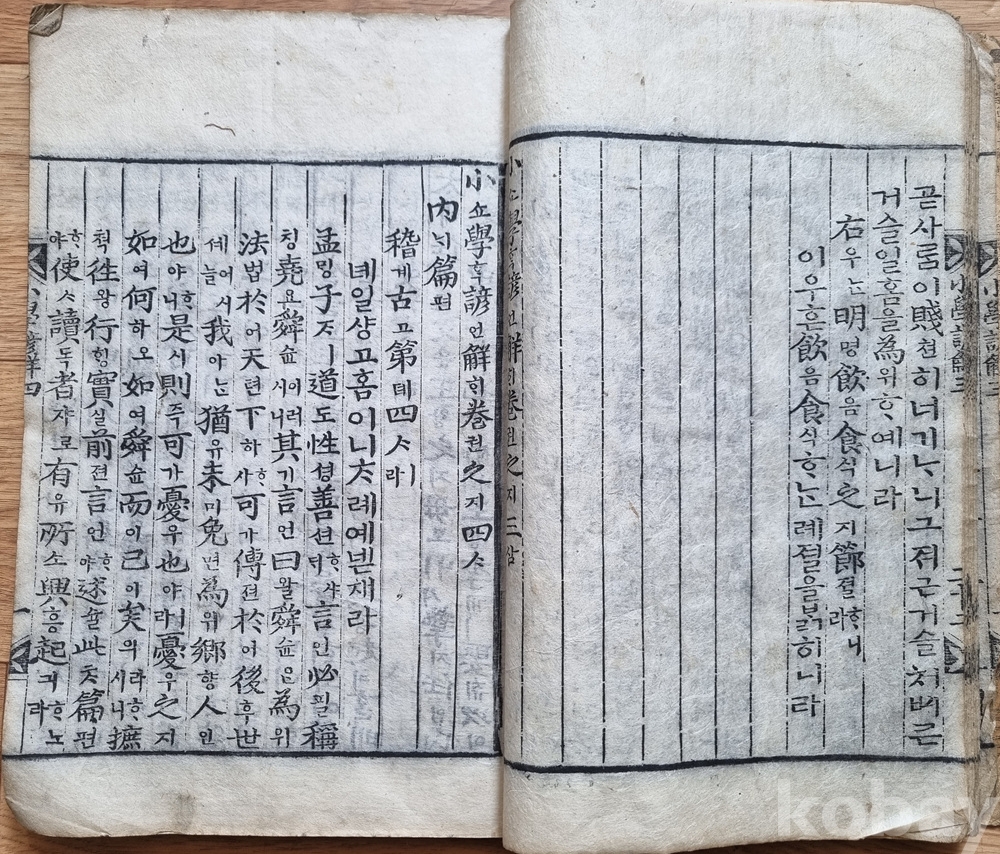 小學諺解三
곧사ᄅᆞᆷ이賤쳔히너기ᄂᆞ니그져근거슬쳐ᄡᅥ큰
거슬일홈을爲위ᄒᆞ예니라
右우ᄂᆞᆫ明명飮음食식之지節졀ᄒᆞ니라
이우흔飮음食식ᄒᆞᄂᆞᆫ례졀을ᄇᆞᆰ히니라
小쇼學ᄒᆞᆨ諺언解ᄒᆡ卷권之지三삼
小쇼學ᄒᆞᆨ諺언解ᄒᆡ卷권之지四ᄉᆞ
內ᄂᆡ篇편
稽계古고第뎨四ᄉᆞㅣ라
녜일샹고홈이니ᄎᆞ례예넫재라
孟ᄆᆡᆼ子ᄌᆞㅣ道도性셩善션ᄒᆞ샤ᄃᆡ言언必필稱
칭堯요舜슌이러시니其기言언曰왈舜슌은為위
法법於어天텬下하ᄒᆞ샤可가傳뎐於어後후世
셰어시늘我아ᄂᆞᆫ猶유未미免면為위鄕향人인
也야ᄒᆞ니是시則즉可가憂우也야ㅣ라憂우之지
如여何하오如여舜슌而이已이矣의라ᄒᆞ시니摭
쳑往왕行ᄒᆡᆼ實실前젼言언ᄒᆞ야述슐此ᄎᆞ篇편
ᄒᆞ야使ᄉᆞ讀독者쟈로有유所소興흥起긔ᄒᆞ노라
小學諺解四
一
kobay